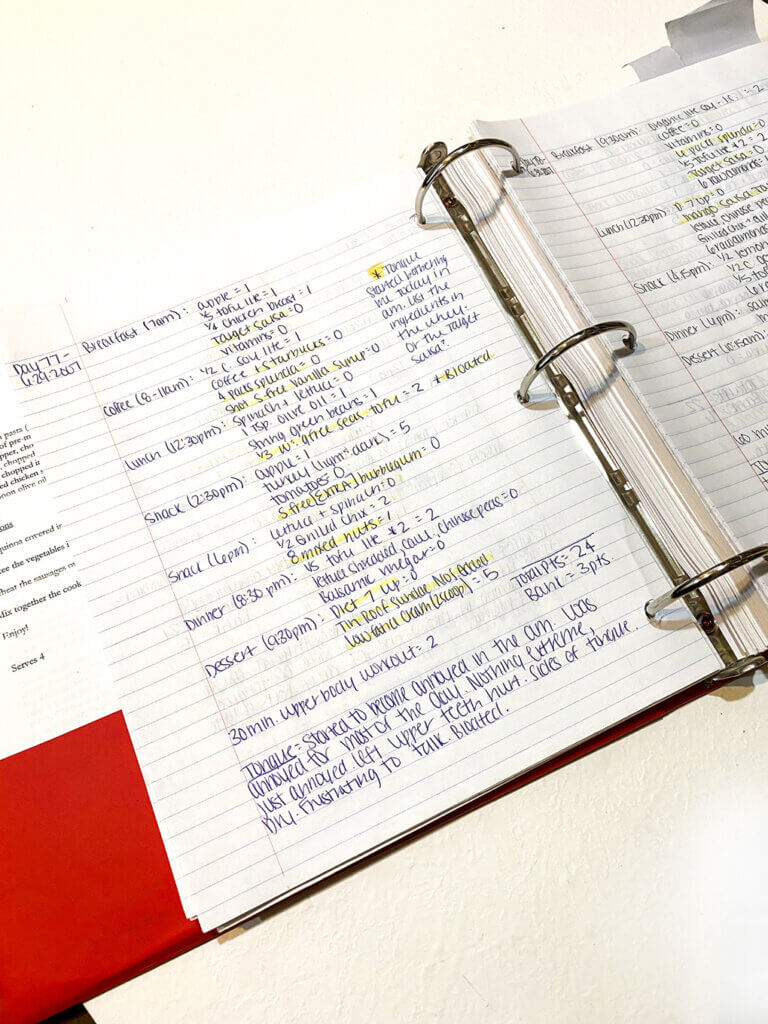 Day 77 -
6-29-2007
Breakfast (7am): apple = 1
1/5 tofu lite = 1
1/4 chicken breast = 1
Target Salsa = 0
vitamins = 0
* Tongue
started bothering
me today in
am. List the
ingredients in
the whey.
Or the Target
Salsa?
Coffee (8-11am): 1/2 C. soy lite = 1
Coffee + Starbucks = 0
4 packs splenda = 0
Shot S. free Vanilla Syrup = 0
Lunch (12:30pm): Spinach + lettuce = 0
1 tsp. olive oil = 1
String green beans = 1
1/3 w. g. free seas. tofu = 2 * Bloated
Snack (2:30pm): apple = 1
turkey = 5
tomatoes = 0
S. free (EXTRA) bubblegum = 0
Snack (6pm): lettuce + spinach = 0
1/2 Grilled Chix = 2
8 mixed nuts = 1
Dinner (8:30 pm): 1/5 tofu lite *2 = 2
lettuce shredded, cauli, chinese peas = 0
Balsamic vinegar = 0
Diet 7 up = 0
Dessert (9:30pm): Tin Roof Sundae No Sugar Added
low fat Ice Cream (2 scoop) = 5
Total pts = 24
Bank = 3pts.
30 min. upper body workout = 2
Tongue = Started to become annoyed in the am. Was
annoyed for most of the day. Nothing extreme,
just annoyed. left upper teeth hurt. Sides of tongue.
Dry. Frustrating to talk. Bloated.
Day 78 -
Breakfast (9:30am): organic lite soy - 1 c. = 2
coffee = 0
vitamins = 0
4 pack splenda = 0
1/5 tofu lite *2 = 2
Target Salsa = 0
6 raw almonds =
D. 7 up = 0
Lunch (12:30pm): mango salsa Ta
lettuce, chinese pe
Grilled chix +
6 raw almonds
Snack (4:15pm): 1/2 lemon
1/2 C.
1/5 tof
6 ra
Dinner (6pm): sal
Dessert (
60 mi
pasta (
of pre-m
pper, cho
chopped
chopped i
ed chicken
oon olive oil
ons
quinoa covered in
ee the vegetables i
heat the sausages o
Mix together the cook
Enjoy!
Serves 4